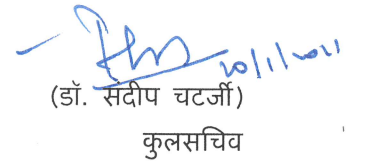 20/1/2021
(डॉ. संदीप चटर्जी)
कुलसचिव